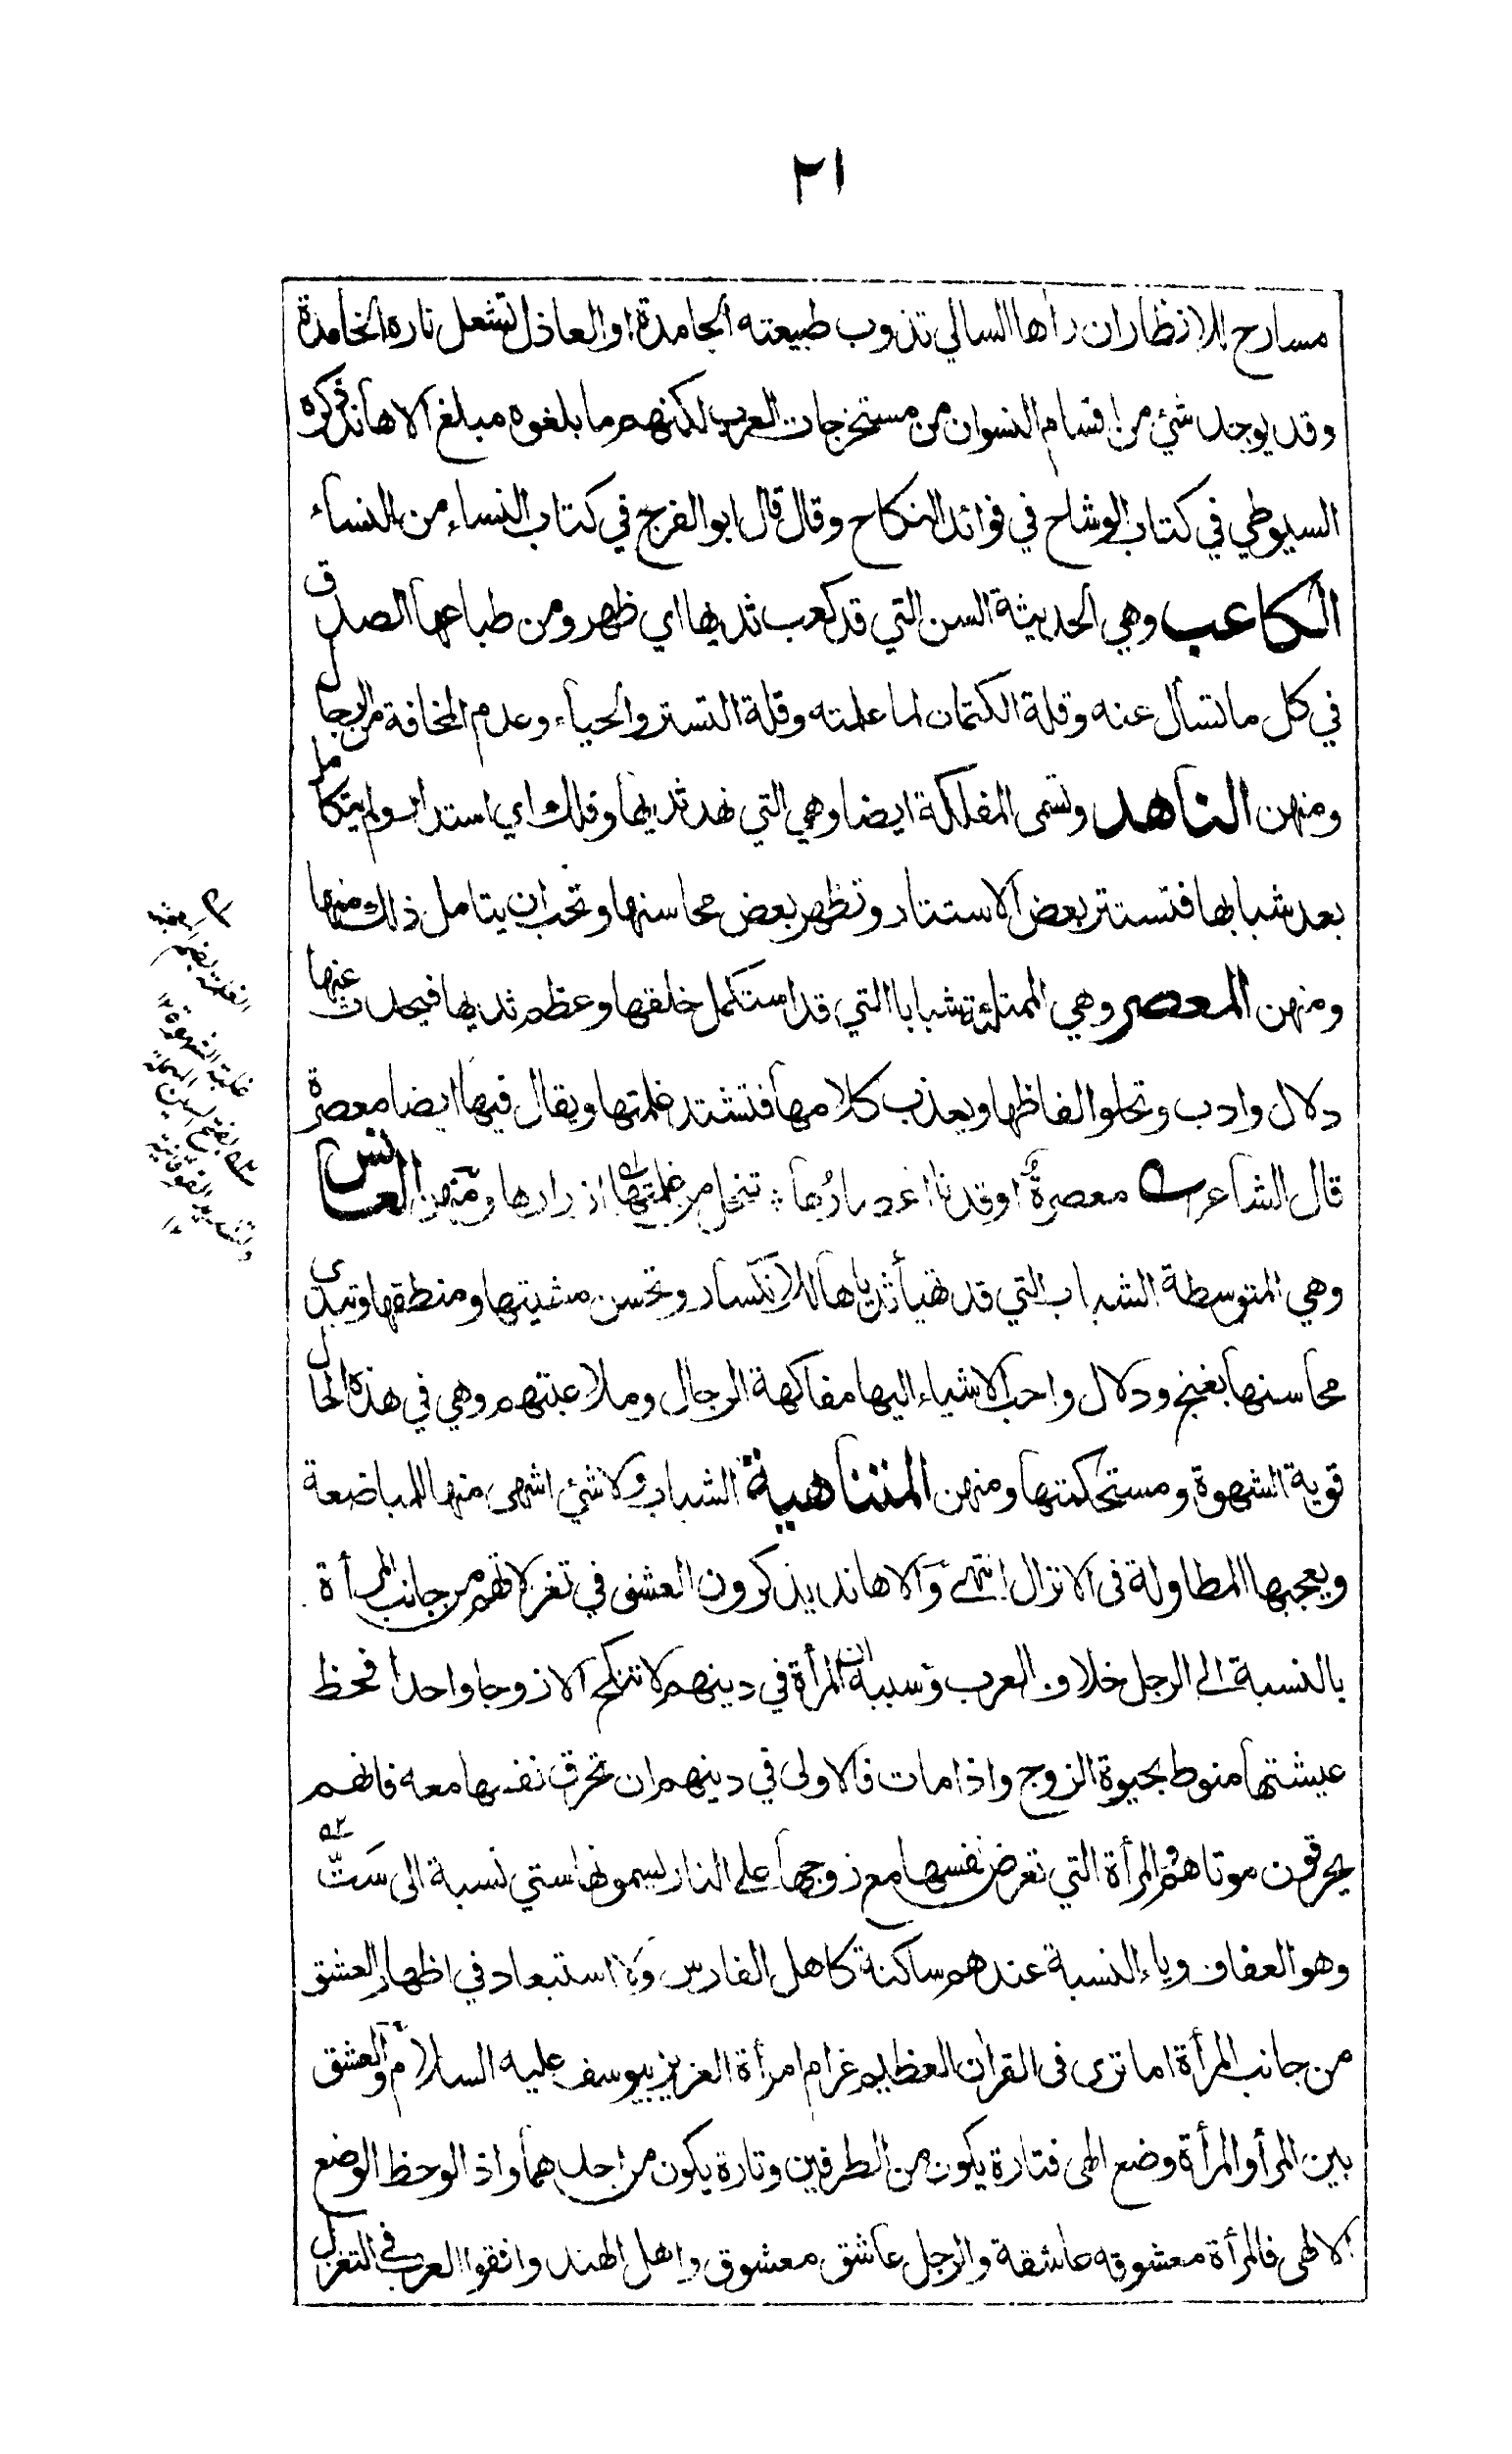 ٢١
مسارح للانظار ان راها السالي تذوب طبيعته الجامدة او العاذل تشعل ناره الخامدة
وقد يوجد شئ من اقسام النسوان من مستخرجات العرب لكنهم ما بلغوه مبلغ الاهاند ذكره
السيوطي في كتاب الوشاح في فوائد النكاح وقال قال ابو الفرج في كتاب النساء من النساء
الكاعب وهي الحديثة السن التي قد كعب ثديها اي ظهر ومن طباعها الصدق
في كل ما تسأل عنه وقلة الكتمان لما علمته وقلة التستر والحياء وعدم المخافة من الرجال
ومنهن الناهد وتسمى المفلكة ايضا وهي التي نهد ثديها وفلك اي استدار ولم يتكامل
بعد شبابها فتستتر بعض الاستتار وتظهر بعض محاسنها وتحب ان يتامل ذلك منها
ومنهن المعصر وهي الممتلئة شبابا التي قد استكمل خلقها وعظم ثديها فيحدث عنها
دلال وادب وتحلو الفاظها ويعذب كلامها فتشتد غلمتها ويقال فيها ايضا معصرة
قال الشاعر معصرةٌ او قد دنا اعصارُها تنحل من غلمتها ازرارها ومنهن العانس
وهي المتوسطة الشباب التي قد تهيأ ثدياها للانكسار وتحسن مشيتها ومنطقها وتبدى
محاسنها بغنج ودلال واحب الاشياء اليها مفاكهة الرجال وملاعبتهم وهي في هذه الحال
قوية الشهوة ومستحكمتها ومنهن المتناهية الشباب ولا شئ اشهى منها للمباضعة
ويعجبها المطاولة فى الانزال انتهى والاهاند يذكرون العشق في تغزلاتهم من جانب المرأة
بالنسبة الى الرجل خلاف العرب وسببه ان المرأة في دينهم لا تنكح الا زوجا واحدا فحظ
عيشتها منوط بحيوة الزوج واذا مات فالاولى في دينهم ان تحرق نفسها معه فانهم
يحرقون موتاهم والمرأة التي تعرض نفسها مع زوجها على النار يسمونها ستي نسبة الى سَتّ
وهو العفاف وياء النسبة عندهم ساكنة كاهل الفارس ولا استبعاد في اظهار العشق
من جانب المرأة اما ترى فى القران العظيم غرام امرأة العزيز بيوسف عليه السلام والعشق
بين المرأ والمرأة وضع الهى فتارة يكون من الطرفين وتارة يكون من احدهما واذا لوحظ الوضع
الالهى فالمرأة معشوقه عاشقة والرجل عاشق معشوق واهل الهند وافقوا العرب في التغزل
الغلمة بضم
غلبة الشهوة ١٢
بفتح السين المهملة
وتشديد الفوقانية
١٢